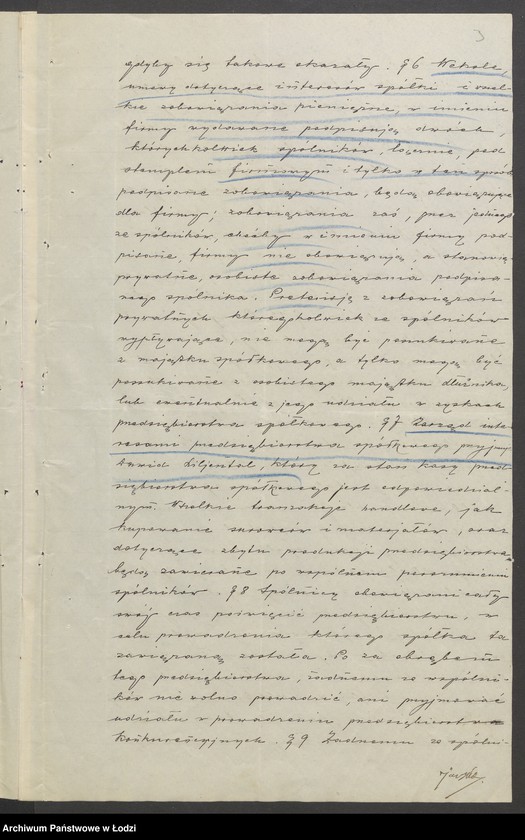 3
gdyby się takowe okazały. § 6 Weksle,
umowy dotyczące interesów spółki i wszel-
kie zobowiązania pieniężne, w imieniu
firmy wydawane podpisują dwóch,
którychkolwiek spólników, łącznie, pod
stemplem firmowym i tylko w ten sposób
podpisane zobowiązania, będą obowiązujące
dla firmy; zobowiązania zaś, przez jednego
ze spólników, choćby w imieniu firmy pod-
pisane, firmy nie obowiązują, a stanowią
prywatne, osobiste zobowiązania podpisa-
nego spólnika. Pretensje z zobowiązań
prywatnych któregokolwiek ze spólników
wypływające, nie mogą być poszukiwane
z majątku spółkowego, a tylko mogą być
poszukiwane z osobistego majątku dłużnika,
lub ewentualnie z jego udziału w zyskach
przedsiębiorstwa spółkowego. § 7 Zarząd inte-
resami przedsiębiorstwa spółkowego przyjmuje
Dawid Liljental, który za stan kasy przed-
siębiorstwa spółkowego jest odpowiedzial-
nym. Wszelkie tranzakcje handlowe, jak
kupowanie surowców i materjałów, oraz
dotyczące zbytu produkcji przedsiębiorstwa
będą zawierane po wspólnem porozumieniu
spólników. § 8 Spólnicy obowiązani cały
swój czas poświęcić przedsiębiorstwu, w
celu prowadzenia którego spółka ta
zawiązaną została. Po za obrębem
tego przedsiębiorstwa, żadnemu ze wspólni-
ków nie wolno prowadzić, ani przyjmować
udziału w prowadzeniu przedsiębiorstw
konkurencyjnych. § 9 Żadnemu ze spólni-
Archiwum Państwowe w Łodzi